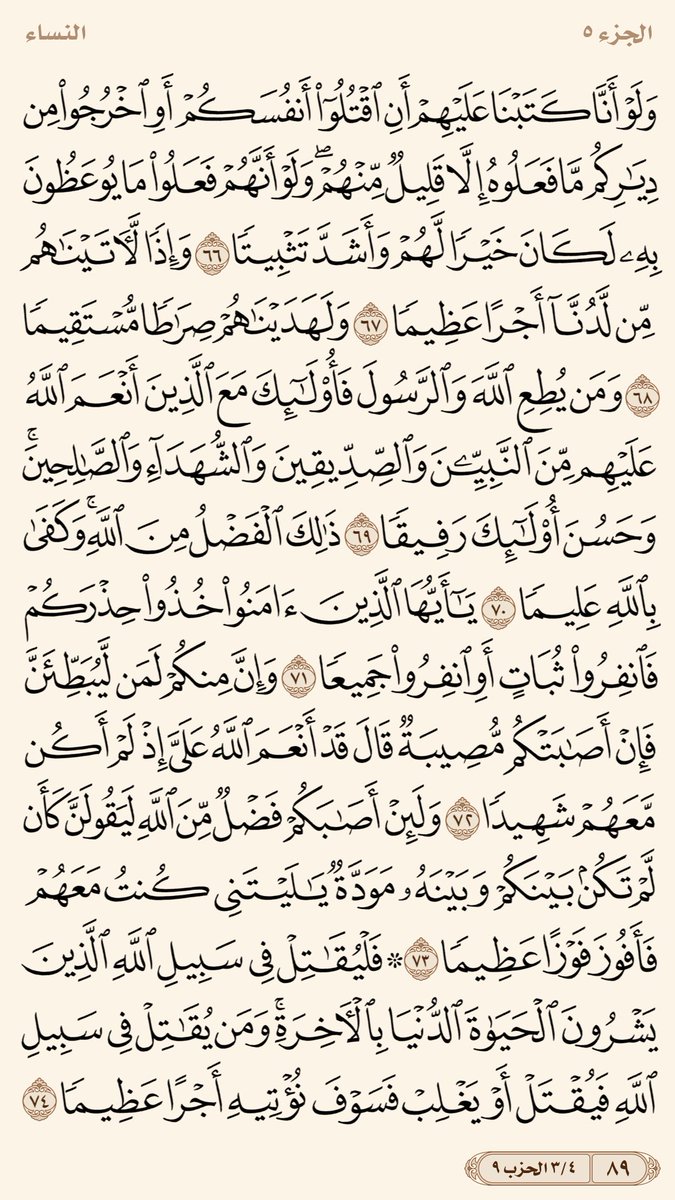 الجزء ٥ النساء
وَلَوْ أَنَّا كَتَبْنَا عَلَيْهِمْ أَنِ ٱقْتُلُوٓا۟ أَنفُسَكُمْ أَوِ ٱخْرُجُوا۟ مِن
دِيَـٰرِكُم مَّا فَعَلُوهُ إِلَّا قَلِيلٌ مِّنْهُمْ ۖ وَلَوْ أَنَّهُمْ فَعَلُوا۟ مَا يُوعَظُونَ
بِهِۦ لَكَانَ خَيْرًا لَّهُمْ وَأَشَدَّ تَثْبِيتًا ٦٦ وَإِذًا لَّـَٔاتَيْنَـٰهُم
مِّن لَّدُنَّآ أَجْرًا عَظِيمًا ٦٧ وَلَهَدَيْنَـٰهُمْ صِرَٰطًا مُّسْتَقِيمًا
٦٨ وَمَن يُطِعِ ٱللَّهَ وَٱلرَّسُولَ فَأُو۟لَـٰٓئِكَ مَعَ ٱلَّذِينَ أَنْعَمَ ٱللَّهُ
عَلَيْهِم مِّنَ ٱلنَّبِيِّـۧنَ وَٱلصِّدِّيقِينَ وَٱلشُّهَدَآءِ وَٱلصَّـٰلِحِينَ ۚ
وَحَسُنَ أُو۟لَـٰٓئِكَ رَفِيقًا ٦٩ ذَٰلِكَ ٱلْفَضْلُ مِنَ ٱللَّهِ ۚ وَكَفَىٰ
بِٱللَّهِ عَلِيمًا ٧٠ يَـٰٓأَيُّهَا ٱلَّذِينَ ءَامَنُوا۟ خُذُوا۟ حِذْرَكُمْ
فَٱنفِرُوا۟ ثُبَاتٍ أَوِ ٱنفِرُوا۟ جَمِيعًا ٧١ وَإِنَّ مِنكُمْ لَمَن لَّيُبَطِّئَنَّ
فَإِنْ أَصَـٰبَتْكُم مُّصِيبَةٌ قَالَ قَدْ أَنْعَمَ ٱللَّهُ عَلَىَّ إِذْ لَمْ أَكُن
مَّعَهُمْ شَهِيدًا ٧٢ وَلَئِنْ أَصَـٰبَكُمْ فَضْلٌ مِّنَ ٱللَّهِ لَيَقُولَنَّ كَأَن
لَّمْ تَكُنۢ بَيْنَكُمْ وَبَيْنَهُۥ مَوَدَّةٌ يَـٰلَيْتَنِى كُنتُ مَعَهُمْ
فَأَفُوزَ فَوْزًا عَظِيمًا ٧٣ ۞ فَلْيُقَـٰتِلْ فِى سَبِيلِ ٱللَّهِ ٱلَّذِينَ
يَشْرُونَ ٱلْحَيَوٰةَ ٱلدُّنْيَا بِٱلْـَٔاخِرَةِ ۚ وَمَن يُقَـٰتِلْ فِى سَبِيلِ
ٱللَّهِ فَيُقْتَلْ أَوْ يَغْلِبْ فَسَوْفَ نُؤْتِيهِ أَجْرًا عَظِيمًا ٧٤
٨٩ ٣/٤ الحزب ٩